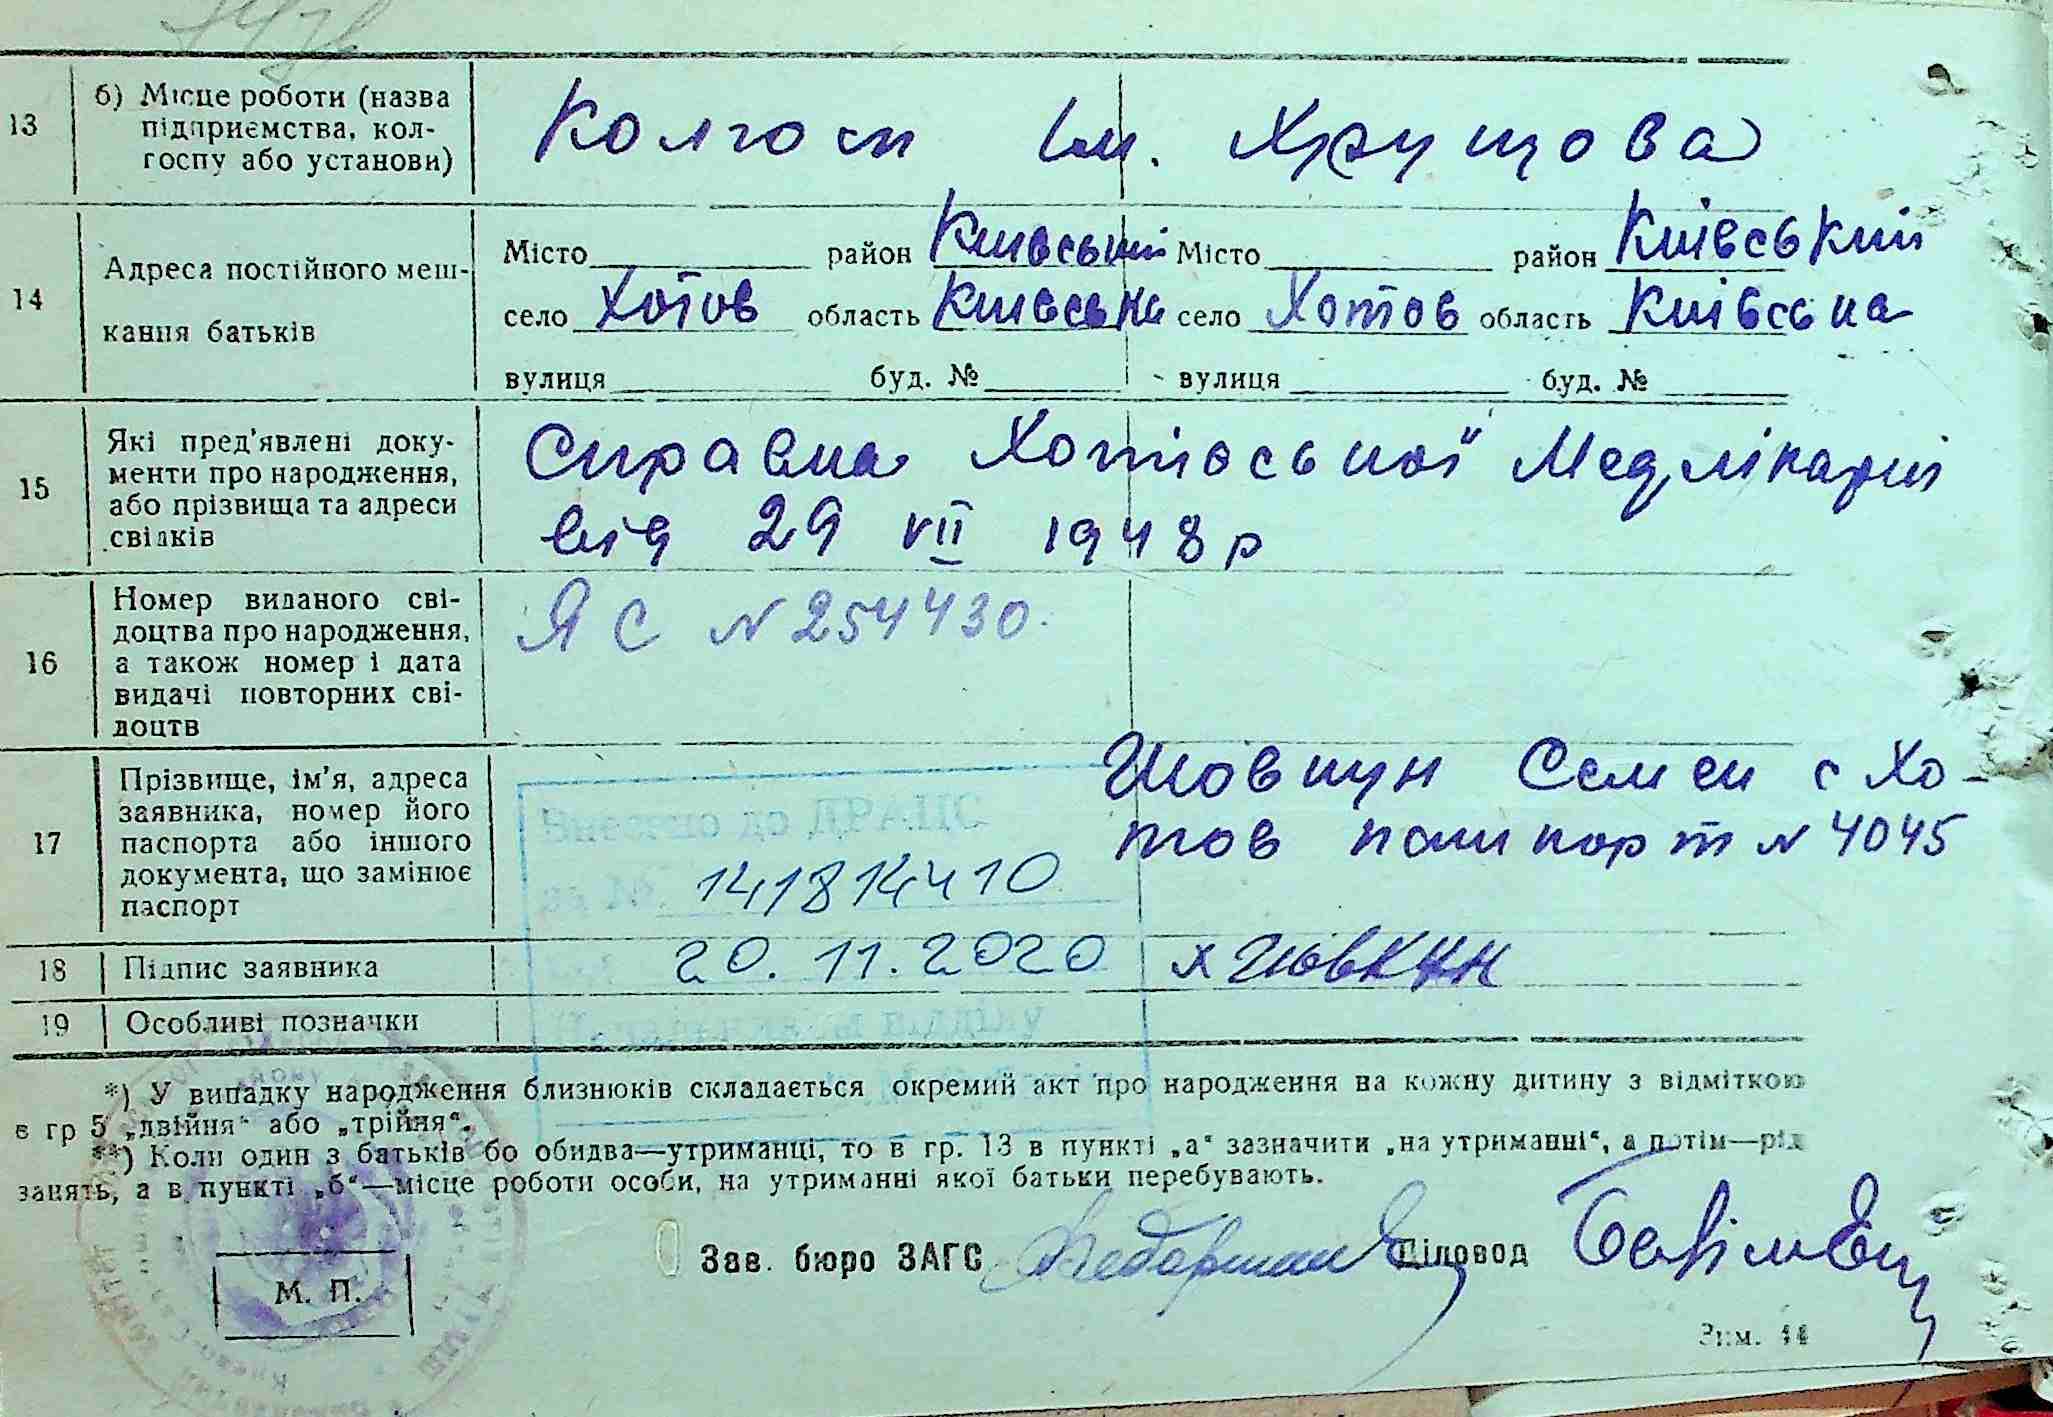 13 б) Місце роботи (назва підприємства, колгоспу або установи) Колгосп ім. Хрущова
14 Адреса постійного мешкання батьків
Місто район Київський Місто район Київський
село Хотов область Київська село Хотов область Київська
вулиця буд. № вулиця буд. №
15 Які пред'явлені документи про народження, або прізвища та адреси свідків
Справка Хотівської Медлікарні
від 29 VII 1948 р
16 Номер виданого свідоцтва про народження, а також номер і дата видачі повторних свідоцтв
ЯС N 254430.
17 Прізвище, ім'я, адреса заявника, номер його паспорта або іншого документа, що замінює паспорт
Шовкун Семен с Хо-
тов N 4045
Внесено до ДРАЦС
за № 141814410
20.11.2020
18 Підпис заявника х Шовкун
19 Особливі позначки
відділу
*) У випадку народження близнюків складається окремий акт про народження на кожну дитину з відміткою
в гр 5 „двійня“ або „трійня“.
**) Коли один з батьків бо обидва—утриманці, то в гр. 13 в пункті „а“ зазначити „на утриманні“, а потім—рід
занять, а в пункті „б“—місце роботи особи, на утриманні якої батьки перебувають.
Зав. бюро ЗАГС Діловод
М. П.
Зим. 44